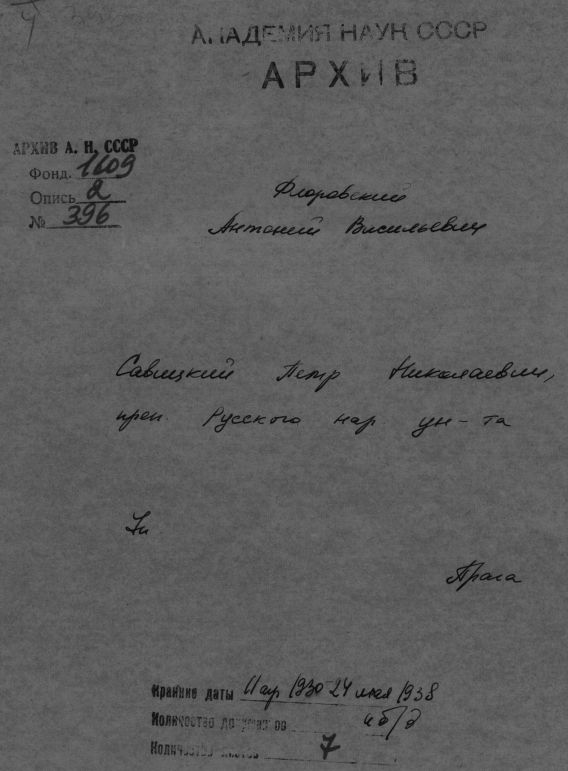 АКАДЕМИЯ НАУК СССР
АРХИВ
АРХИВ А. Н. СССР
Фонд. 1609
Опись 2
№ 396
Флоровский
Антоний Васильевич
Савицкий Петр Николаевич,
преп. Русского нар ун-та
Прага
Крайние даты 11 апр 1930-24 мая 1938
Количество документов
Количество листов 7